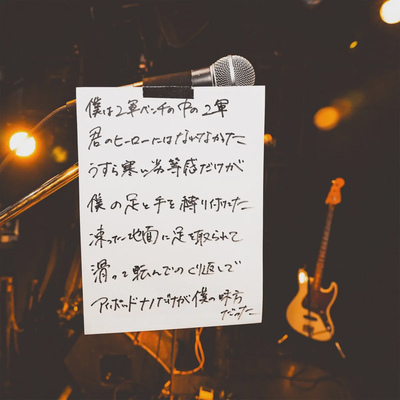 僕は2軍ベンチの中の2軍
君のヒーローにはなれなかった
うすら寒い劣等感だけが
僕の足と手を縛り付けた
凍った地面に足を取られて
滑って転んでのくり返しで
アイポッドナノだけが僕の味方
だった